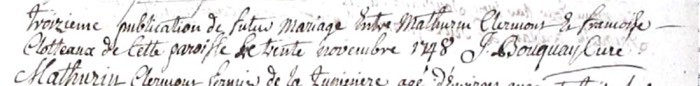 troizieme publication de futur mariage entre Mathurin Clermont & francoise
Clotteaux de cette paroisse le trente novembre 1748 J. Bouquay Curé
Mathurin Clermont fermier de la agé d'environ